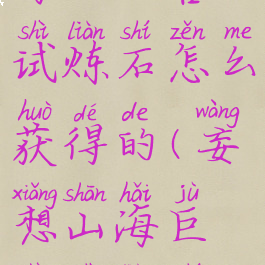 shì liàn shí zěn me
试炼石怎么
huò dé de wàng
获得的(妄
xiǎng shān hǎi jù
想山海巨